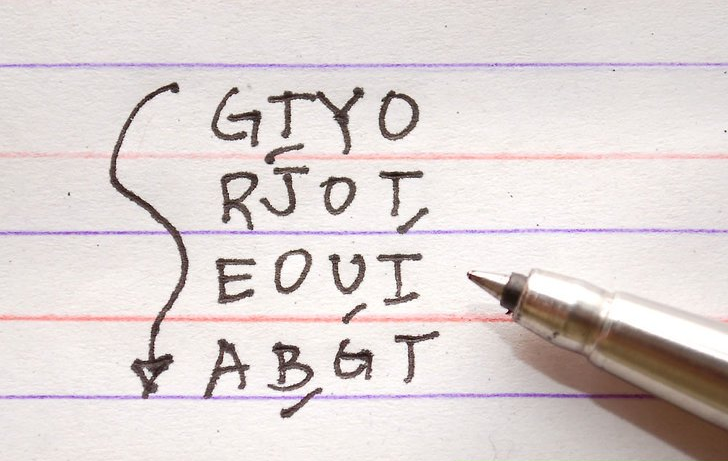 GTYO
RJOT,
EOUI
ABGT